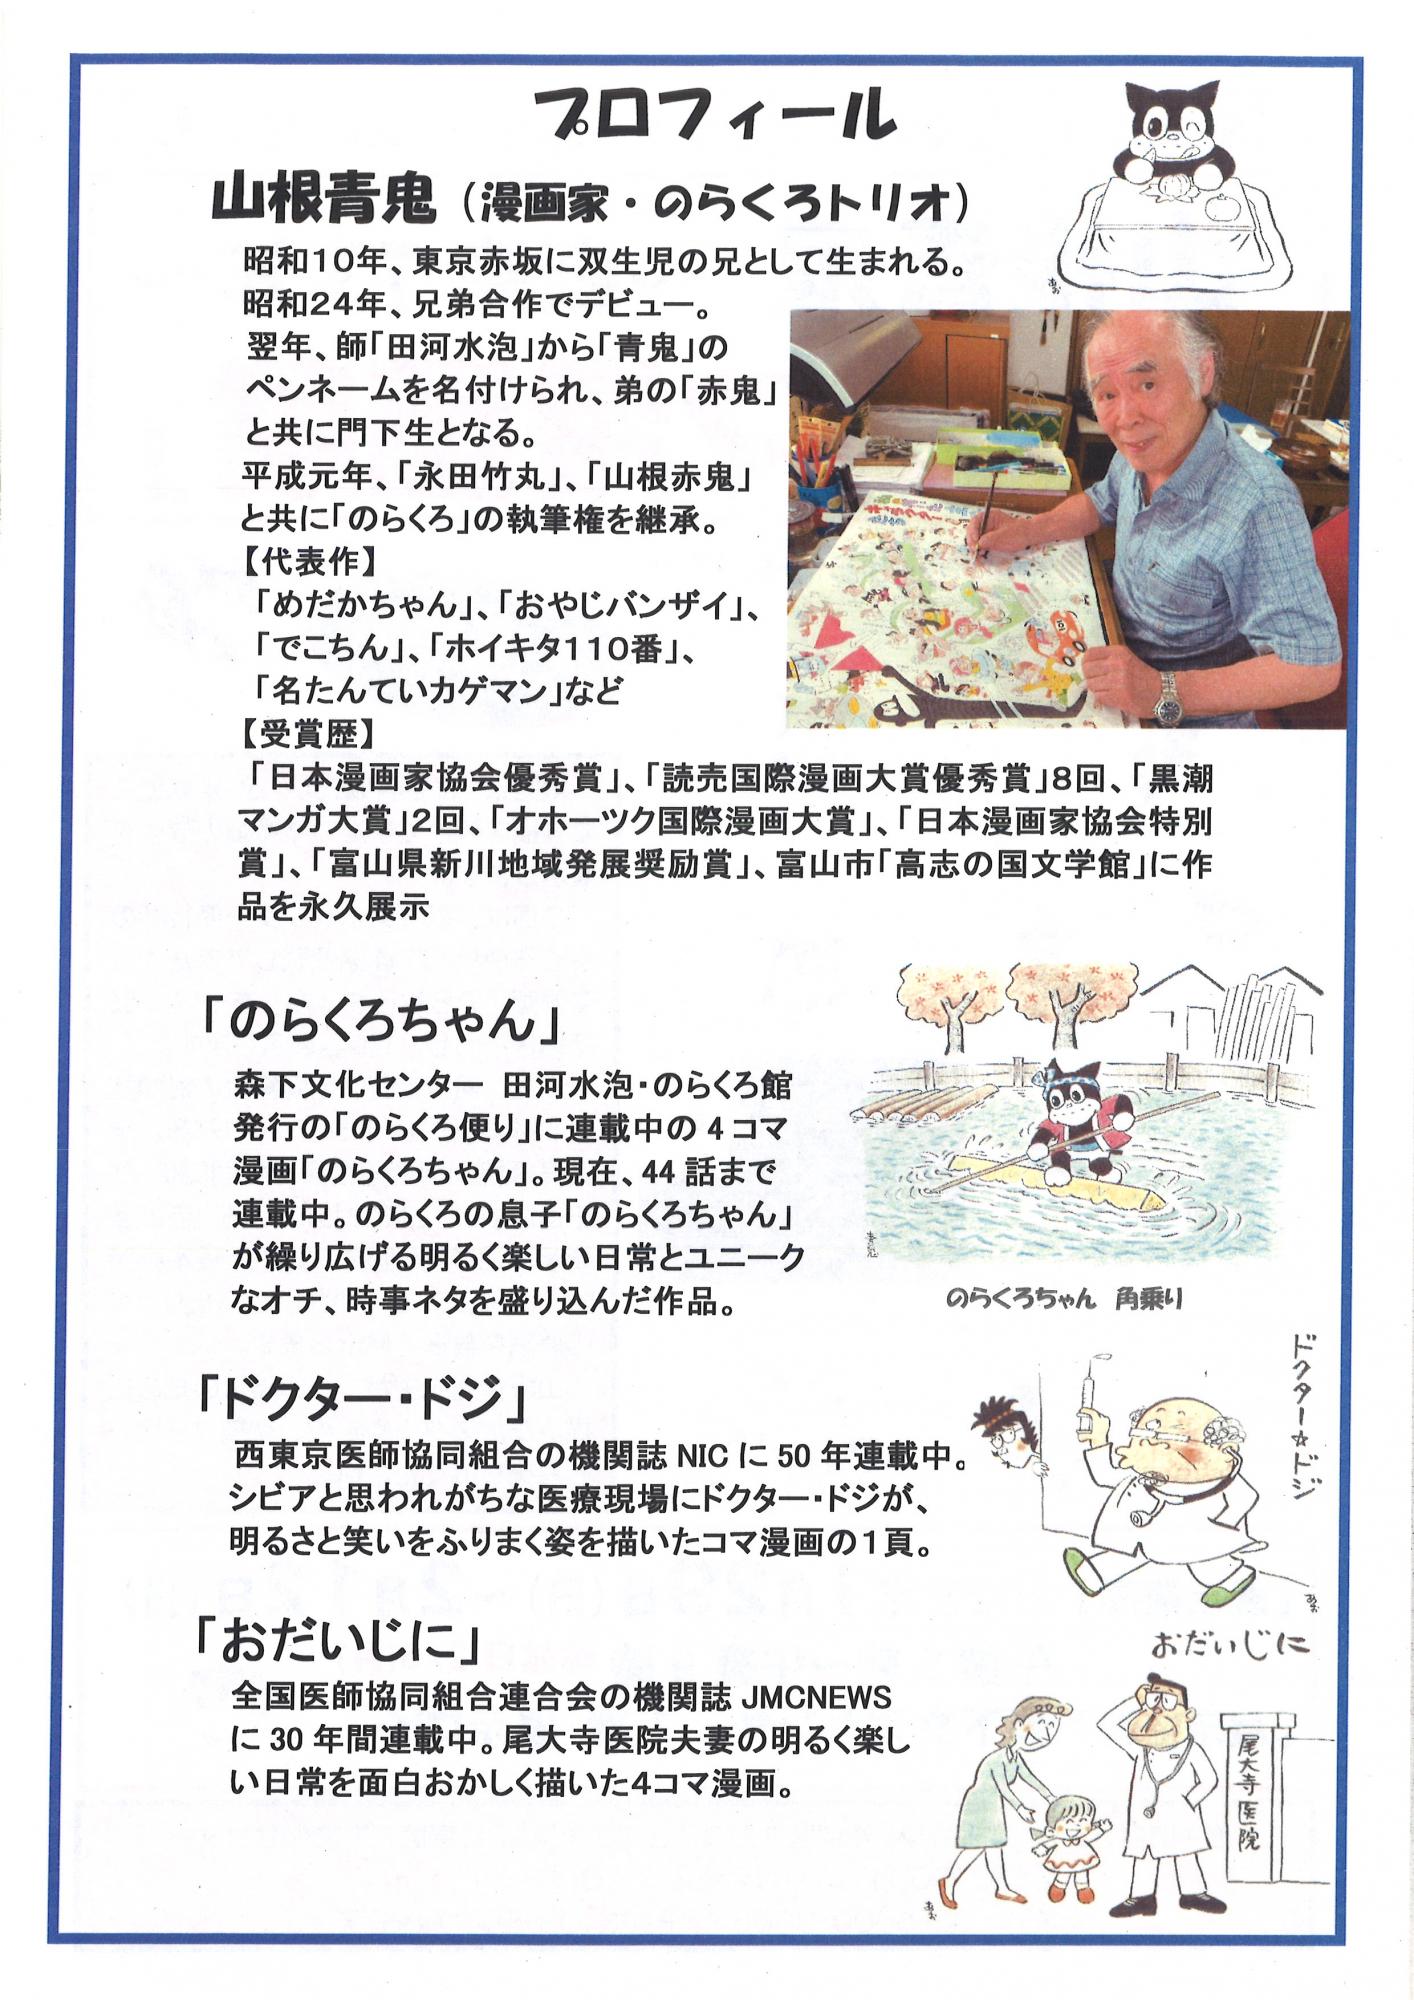 プロフィール
山根青鬼（漫画家・のらくろトリオ）
昭和10年、東京赤坂に双生児の兄として生まれる。
昭和24年、兄弟合作でデビュー。
翌年、師「田河水泡」から「青鬼」の
ペンネームを名付けられ、弟の「赤鬼」
と共に門下生となる。
平成元年、「永田竹丸」、「山根赤鬼」
と共に「のらくろ」の執筆権を継承。
【代表作】
「めだかちゃん」、「おやじバンザイ」、
「でこちん」、「ホイキタ110番」、
「名たんていカゲマン」など
【受賞歴】
「日本漫画家協会優秀賞」、「読売国際漫画大賞優秀賞」8回、「黒潮
マンガ大賞」2回、「オホーツク国際漫画大賞」、「日本漫画家協会特別
賞」、「富山県新川地域発展奨励賞」、富山市「高志の国文学館」に作
品を永久展示
「のらくろちゃん」
森下文化センター 田河水泡・のらくろ館
発行の「のらくろ便り」に連載中の 4 コマ
漫画「のらくろちゃん」。現在、44 話まで
連載中。のらくろの息子「のらくろちゃん」
が繰り広げる明るく楽しい日常とユニーク
なオチ、時事ネタを盛り込んだ作品。
青鬼
のらくろちゃん 角乗り
「ドクター・ドジ」
西東京医師協同組合の機関誌 NIC に 50 年連載中。
シビアと思われがちな医療現場にドクター・ドジが、
明るさと笑いをふりまく姿を描いたコマ漫画の1頁。
ドクター☆ドジ
「おだいじに」
全国医師協同組合連合会の機関誌 JMCNEWS
に 30 年間連載中。尾大寺医院夫妻の明るく楽し
い日常を面白おかしく描いた4コマ漫画。
おだいじに
尾大寺医院